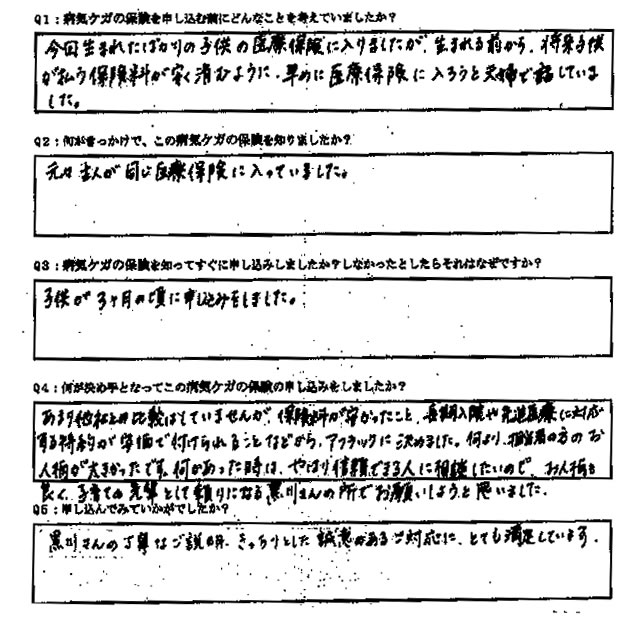 Q1：病気ケガの保険を申し込む前にどんなことを考えていましたか？
今回生まれたばかりの子供の医療保険に入りましたが、生まれる前から、将来子供
が払う保険料が安く済むように、早めに医療保険に入ろうと夫婦で話していま
した。
Q2：何がきっかけで、この病気ケガの保険を知りましたか？
元々主人が同じ医療保険に入っていました。
Q3：病気ケガの保険を知ってすぐに申し込みしましたか？しなかったとしたらそれはなぜですか？
子供が3ヶ月の頃に申し込みをしました。
Q4：何が決め手となってこの病気ケガの保険の申し込みをしましたか？
あまり他社との比較はしていませんが、保険料が安かったこと、長期入院や先進医療に対応
する特約が安価で付けられることなどから、アフラックに決めました。何より、担当者の方のお
人柄が大きかったです。何かあった時は、やはり信頼できる人に相談したいので、お人柄も
良く、子育ての先輩として頼りになる黒川さんの所でお願いしようと思いました。
Q5：申し込んでみていかがでしたか？
黒川さんの丁寧なご説明、きっちりとした誠意があるご対応に、とても満足しています。